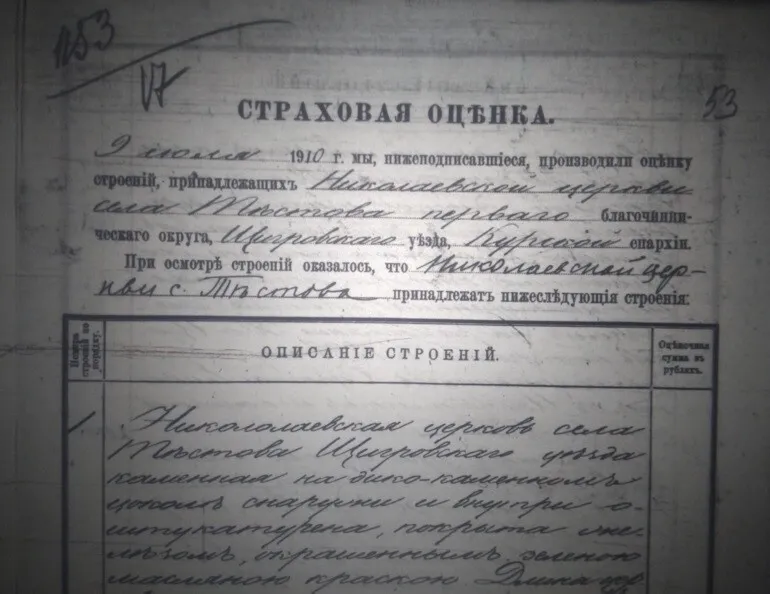 №53
17
53
СТРАХОВАЯ ОЦѢНКА.
9 июля 1910 г. мы, нижеподписавшіеся, производили оцѣнку
строеній, принадлежащихъ Николаевской церкви
села Тѣстова перваго благочинни-
ческаго округа, Щигровскаго уѣзда, Курской епархіи.
При осмотрѣ строеній оказалось, что Николаевской цер-
кви с. Тѣстова принадлежатъ нижеслѣдующія строенія:
строеній по
порядку.
ОПИСАНІЕ СТРОЕНІЙ.
Оцѣночная
сумма въ
рубляхъ.
1. Никололаевская церковь села
Тѣстова Щигровскаго уѣзда
каменная на дико-каменномъ
цоколѣ снаружи и внутри о-
штукатурена, покрыта же-
лѣзомъ, окрашеннымъ зеленою
масляною краскою Длина